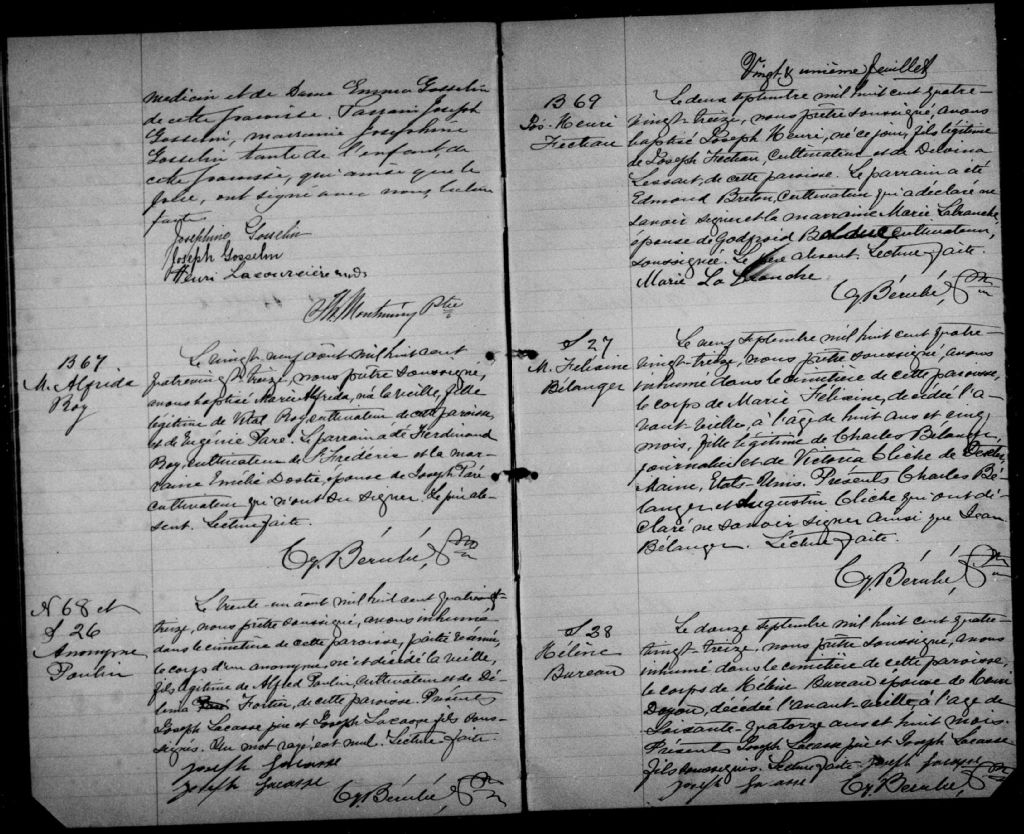 medicin et de Dame Emma Gosselin
de cette paroisse. Parrain Joseph
Gosselin, marraine Josephine
Gosselin tante de l'enfant, de
cette paroisse, qui ainsi que le
père, ont signé avec nous. Lecture
faite
Josephine Gosselin
Joseph Gosselin
Henri Lacoursière
Th. Montminy Ptre
B 67
M. Alfrida
Roy
Le vingt-neuf août mil huit cent
quatre vingt treize, nous prêtre soussigné,
avons baptisé Marie Alfrida, née la veille, fille
légitime de Vital Roy, cultivateur, de cette paroisse,
et de Eugénie Paré. Le parrain a été Ferdinand
Roy, cultivateur de St Frédéric et la mar-
raine Emélie Dostie, épouse de Joseph Paré
cultivateur qui n'ont su signer. Le père ab-
sent. Lecture faite.
Cy. Bérubé, Ptre
N 68 et
S 26
Anonyme
Poulin
Le trente-un août mil huit cent quatre vingt-
treize, nous prêtre soussigné, avons inhumé
dans le cimetière de cette paroisse,
le corps d'un anonyme, né et décédé la veille,
fils légitime de Alfred Poulin, cultivateur et de Dé-
lima Fortier, de cette paroisse. Présents
Joseph Lacasse père et Joseph Lacasse fils sous-
signés. Un mot rayé est nul. Lecture faite.
Joseph Lacasse
Joseph Lacasse
Cy. Bérubé, Ptre
Vingt & unième feuillet
B 69
Jos. Henri
Fecteau
Le deux septembre mil huit cent quatre-
vingt-treize, nous prêtre soussigné, avons
baptisé Joseph Henri, né ce jour, fils légitime
de Joseph Fecteau, Cultivateur et de Delvina
Lessart, de cette paroisse. Le parrain a été
Edmond Breton, Cultivateur qui a déclaré ne
savoir signer et la marraine Marie Labranche,
épouse de Godfroid Bolduc, cultivateur,
soussignée. Le père absent. Lecture faite.
Marie La branche
Cy. Bérubé, Ptre
S 27
M. Félixine
Bélanger
Le septembre mil huit cent quatre-
vingt-treize, nous prêtre soussigné, avons
inhumé dans le cimetière de cette paroisse,
le corps de Marie Félixine, décédée l'a-
vant-veille, à l'âge de huit ans et cinq
mois, fille légitime de Charles Bélanger,
journalier et de Victoria Cliche de Dexter
Maine, Etats-Unis. Présents Charles Bé-
langer et Augustin Cliche qui ont dé-
claré ne savoir signer ainsi que Jean
Bélanger. Lecture faite.
Cy. Bérubé, Ptre
S 28
Hélène
Bureau
Le douze septembre mil huit cent quatre-
vingt-treize, nous prêtre soussigné, avons
inhumé dans le cimetière de cette paroisse,
le corps de Hélène Bureau épouse de
Doyon, décédée l'avant-veille, à l'âge de
soixante-quatorze ans et huit mois.
Présents Joseph Lacasse père et Joseph Lacasse
fils soussignés. Lecture faite. Joseph Lacasse
Joseph Lacasse
Cy. Bérubé, Ptre